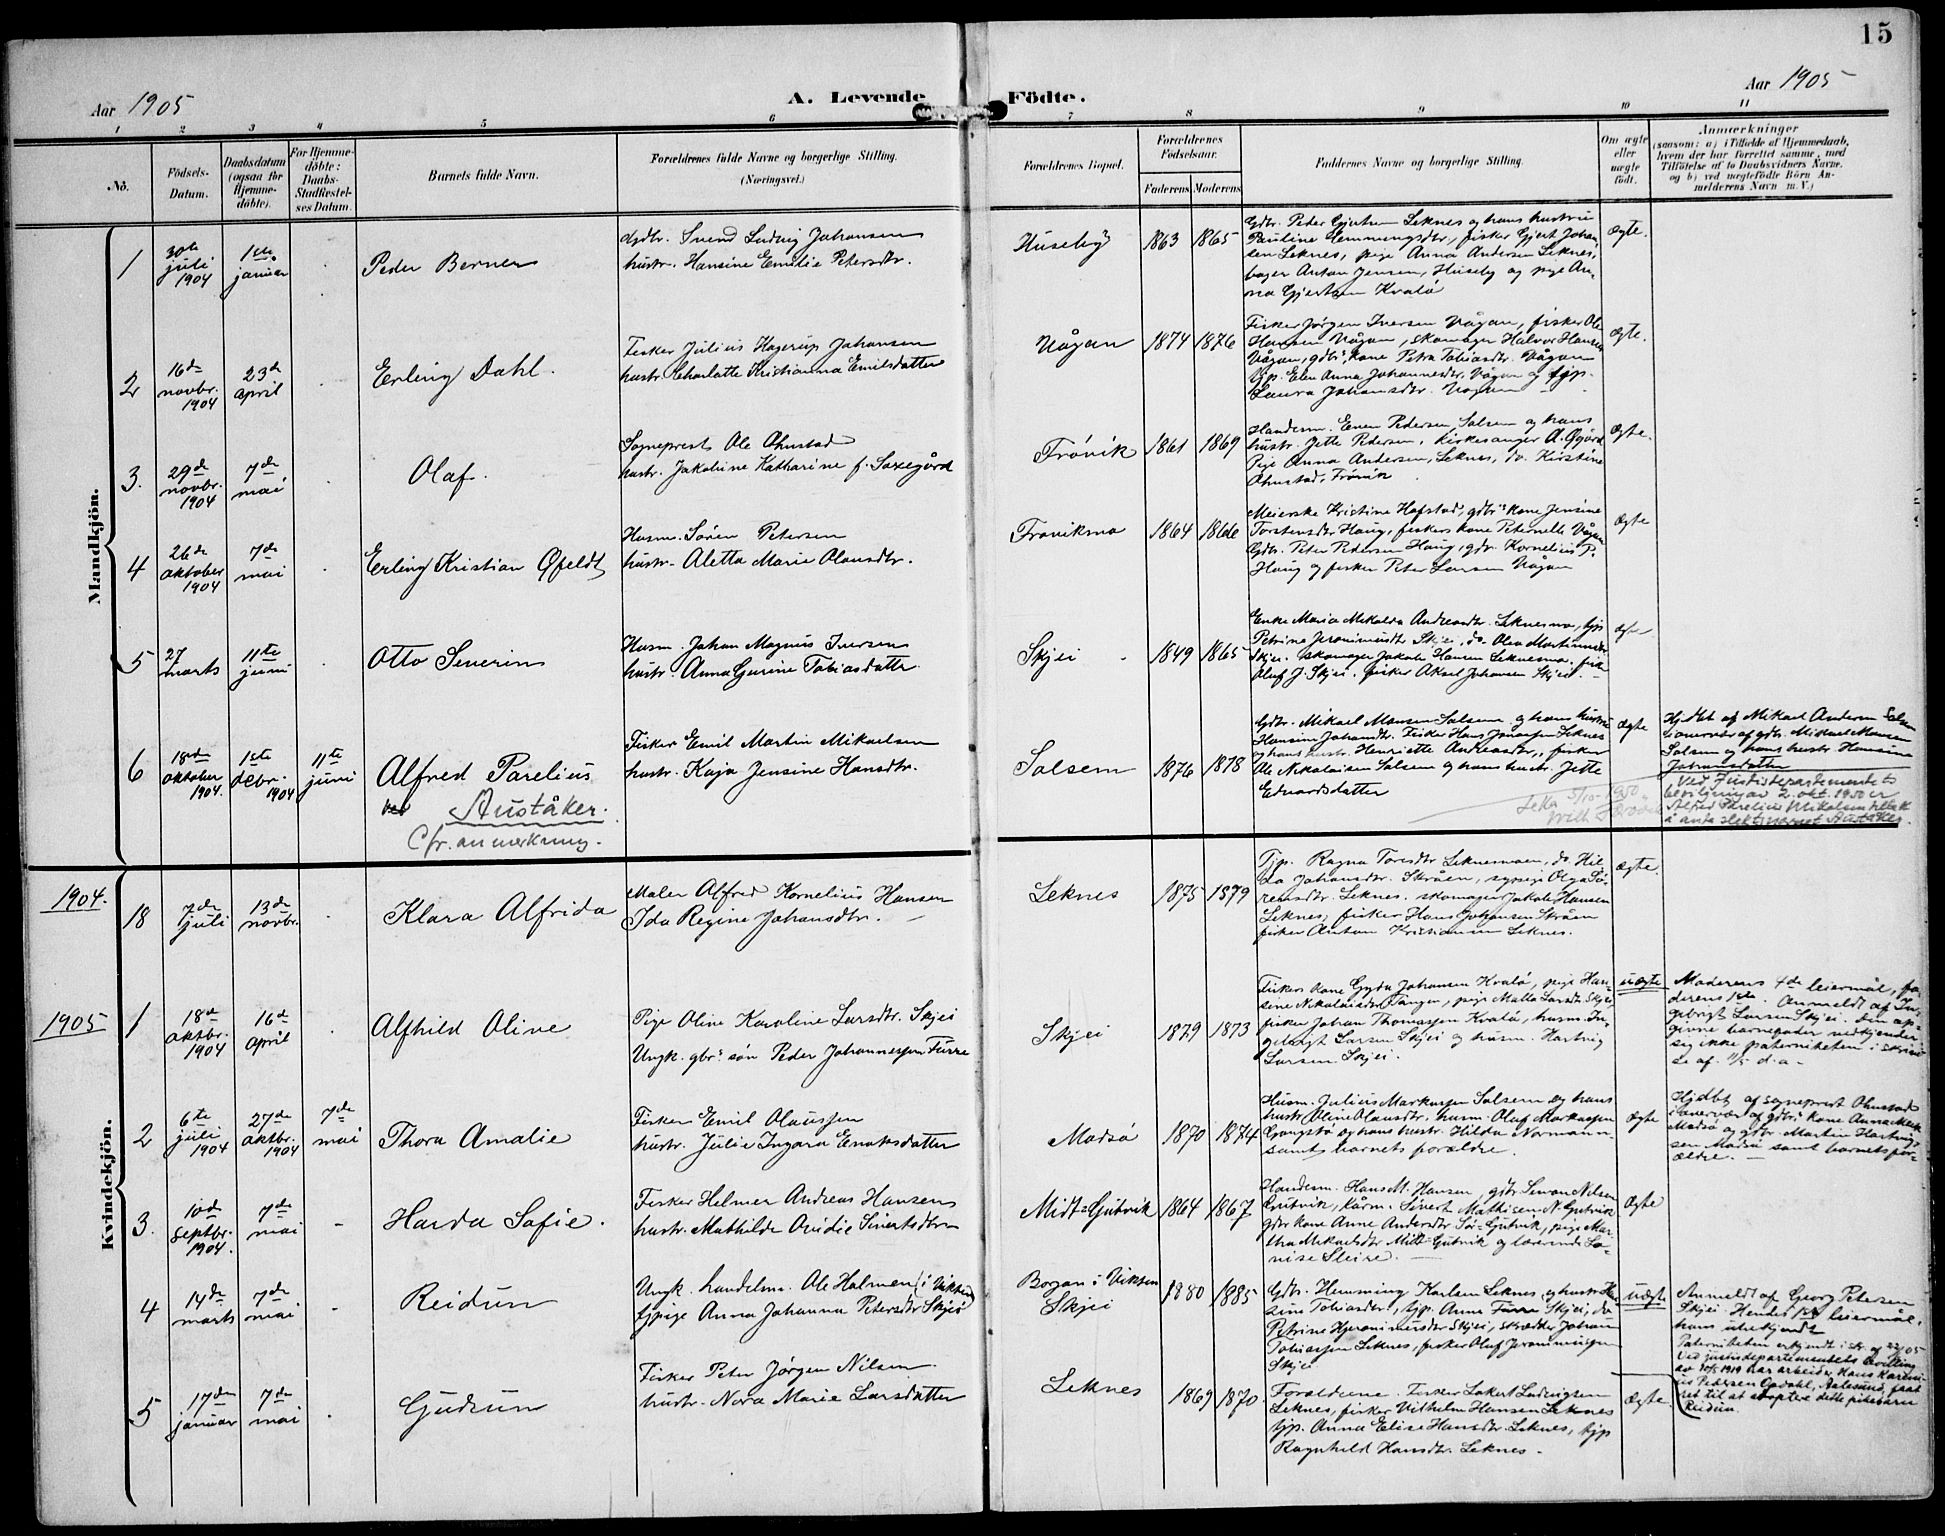 15
Aar 1905
A. Levende Födte.
Aar 1905
1 2 3 4 5 6 7 8 9 10 11
No.
Födsels-
Datum.
Daabsdatum
(ogsaa for
Hjemme-
döbte).
For Hjemme-
döbte:
Daabs-
Stadfæstel-
ses Datum.
Barnets fulde Navn.
Forældrenes fulde Navne og borgerlige Stilling.
(Næringsvei.)
Forældrenes Bopæl.
Forældrenes
Födselsaar.
Faderens Moderens
Faddernes Navne og borgerlige Stilling.
Om ægte
eller
uægte
født.
Anmærkninger
(saasom: a) i Tilfælde af Hjemmedaab,
hvem der har forrettet samme, med
Tilföielse af to Daabsvidners Navne,
og b) ved uægtefödte Börn An-
melderens Navn m. V.)
Mandkjön.
1
30te
juli
1904
1ste
januar
Peder Berner
Gdbr. Svend Ludvig Johansen
hustr. Hansine Emilie Petersdtr.
Huseby
1863 1865
Gdbr. Peder Gjertsen Leknes og hans hustru
Pauline Hemmingsdtr., fisker Gjert Johan-
sen Leknes, pige Anna Andersen Leknes,
bager Anton Jensen, Huseby og pige An-
na Gjertsen Kvalö
Ægte.
2
16de
novbr.
1904
23de
april
Erling Dahl.
Fisker Julius Hagerup Johansen
hustr. Charlotte Kristianna Emilsdatter
Vågan
1874 1876
Fisker Jørgen Iversen Vågan, fisker Ole
Hansen Vågan, skomager Halvor Hansen
Vågan, gdbrs kone Petra Tobiasdtr. Vågan
tjp. Elen Anna Johannesdtr. Vågan og tjp.
Laura Johansdtr. Vågan
Ægte.
3.
29de
novbr.
1904
7de
mai
Olaf.
Sogneprest Ole Ohnstad
hustr. Jakobine Katharine f. Saxegård
Frövik
1861 1869
Handelsm. Even Pedersen, Solsem og hans
hustr. Jette Pedersen, kirkesanger A. Øgård
Pige Anna Andersen, Leknes, do. Kirstine
Ohnstad, Frövik
Ægte.
4
26de
oktober
1904
7de
mai
Erling Kristian Øfeldt
Husm. Sören Petersen
hustr. Aletta Marie Olausdtr.
Fröviksmo
1864 1866
Meierske Kristine Hafstad, gdbrs kone Jensine
Torstensdtr Haug, fiskers kone Peternelle Vågan
Gdbr. Peter Pedersen Haug, gdbr. Kornelius P.
Haug og fisker Peter Larsen Vågan
Ægte
5
27
marts
11te
juni
Otto Severin
Husm. Johan Magnus Iversen
hustr. Anna Gurine Tobiasdatter
Skjei
1849 1865
Enke Maria Mekalda Andreasdtr. Leknesmo, tjp
Petrine Jeronimusdtr Skjei, do. Olea Martinusdtr
Skjei. skomager Jakob Hansen Leknesmo, fisk.
Oluf J. Skjei. fisker Aksel Johansen Skjei.
Ægte
6
18de
oktober
1904.
1ste
debr.
1904
11te
juni
Alfred Parelius
Auståker.
Cfr. anmerkning.
Fisker Emil Martin Mikaelsen
hustr. Kaja Jensine Hansdtr.
Solsem
1876 1878
Gdbr. Mikael Monsen Solsem og hans hustru
Hansine Johansdtr. Fisker Hans Jonassen Leknes
og hans hustr. Henriette Andreasdtr, fisker
Ole Nikolaisen Solsem og hans hustr. Jette
Edvardsdatter
Ægte
Hj.dbt af Mikael Andersen Solsem
i overvær af gdbr. Mikael Monsen
Solsem og hans hustr. Hansine
Johansdatter
Ved Justisdepartementets
bevilgning av 2. okt. 1950 er
Alfred Parelius Mikalsen tillatt
å anta slektsnavnet Auståker.
Leka 5/10-1950.
1904.
Kvindekjön.
18
7de
juli
13de
novbr.
Klara Alfrida
Maler Alfred Kornelius Hansen
Ida Regine Johansdtr.
Leknes
1875 1879
Tjp. Ragna Toresdtr Leknesmoen, do. Hil-
da Johansdtr. Skråen, sypige Olga Sö-
rensdtr. Leknes. skomager Jakob Hansen
Leknes, fisker Hans Johansen Skråen
fisker Anton Kristiansen Leknes.
Ægte.
1905
1
18de
oktbr.
1904
16de
april
Alfhild Oline
Pige Oline Karoline Larsdtr. Skjei
Ungk. gbrs sön Peder Johannessen Furre
Skjei
1879 1873
Fiskers kone Gyda Johansen Kvalö, pige Han-
sine Nikolaisdtr Tangen, pige Malla Larsdtr Skjei
fisker Johan Thomassen Kvalö, husm. In-
gebrigt Larsen Skjei og husm. Hartvig
Larsen Skjei.
Uægte
Moderens 4de leiermål, fa-
derens 1ste. Anmeldt af In-
gebrigt Larsen Skjei. Den op-
givne barnefader vedkjender
sig ikke paterniteten i skrivel-
se af 11/5 d.a.
2
6te
juli
1904
27de
oktbr.
1904
7de
mai
Thora Amalie
Fisker Emil Olaussen
hustr. Julie Ingara Enoksdatter
Madsö
1870 1874
Husm. Julius Markussen Solsem og hans
hustr Oline Olausdtr. husm. Oluf Markussen
Gangstö og hans hustr. Hilda Normann
samt barnets forældre.
Ægte
Hjdbt af sogneprest Ohnstad
i overvær af gdbrs kone Anna
Madsö og gdbr. Martin Hartvig-
sen Madsö samt barnets for-
ældre.
3.
10de
septbr.
1904.
7de
mai
Harda Sofie.
Fisker Helmer Andreas Hansen
hustr. Mathilde Ovidie Sivertsdtr.
Midt-Gutvik
1864 1867
Handelsm. Hans M. Hansen, gdbr Simon Nilsen
Gutvik, kårm. Sivert Mathisen N. Gutvik
gdbr kone Anne Andersdtr Sö-Gutvik, pige Mar-
tha Mikaelsdtr Midt-Gutvik og lærerinde Lo-
vise Sleire.
Ægte
4
14de
marts
7de
mai
Reidun
Ungk. handelsm. Ole Halmen (i Vikten)
tjpige Anna Johanna Petersdtr Skjei
Borgan i Vikten
Skjei
1880 1885
Gdbr. Hemming Karlsen Leknes og hustr Han-
sine Tobiasdtr, tjp. Anne Furre Skjei, do
Petrine Hjeronimusdtr Skjei, skrædder Johan
Tobiassen Leknes, fisker Oluf Jeronimussen
Skjei
Uægte
Anmeldt af Georg Petersen
Skjei. Hendes 1ste leiermål,
hans ubekjendt
Paterniteten erkjendt i skr. af 22/5 05
Ved justisdepartementets bevilling
av 10/5 1919 har arbeider Hans Kareni-
us Pedersen Opdahl, Aalesund, faat
ret til at adoptere dette pikebarn
Reidun.
5
17de
januar
7de
mai
Gudrun
Fisker Peter Jørgen Nilsen
hustr. Nora Marie Larsdatter
Leknes
1869 1870.
Forældrene. Fisker Lokert Ludvigsen
Leknes, fisker Vilhelm Hansen Leknes
tjp. Anna Elise Hansdtr. Leknes, tjp
Ragnhild Hansdtr. Leknes.
Ægte.